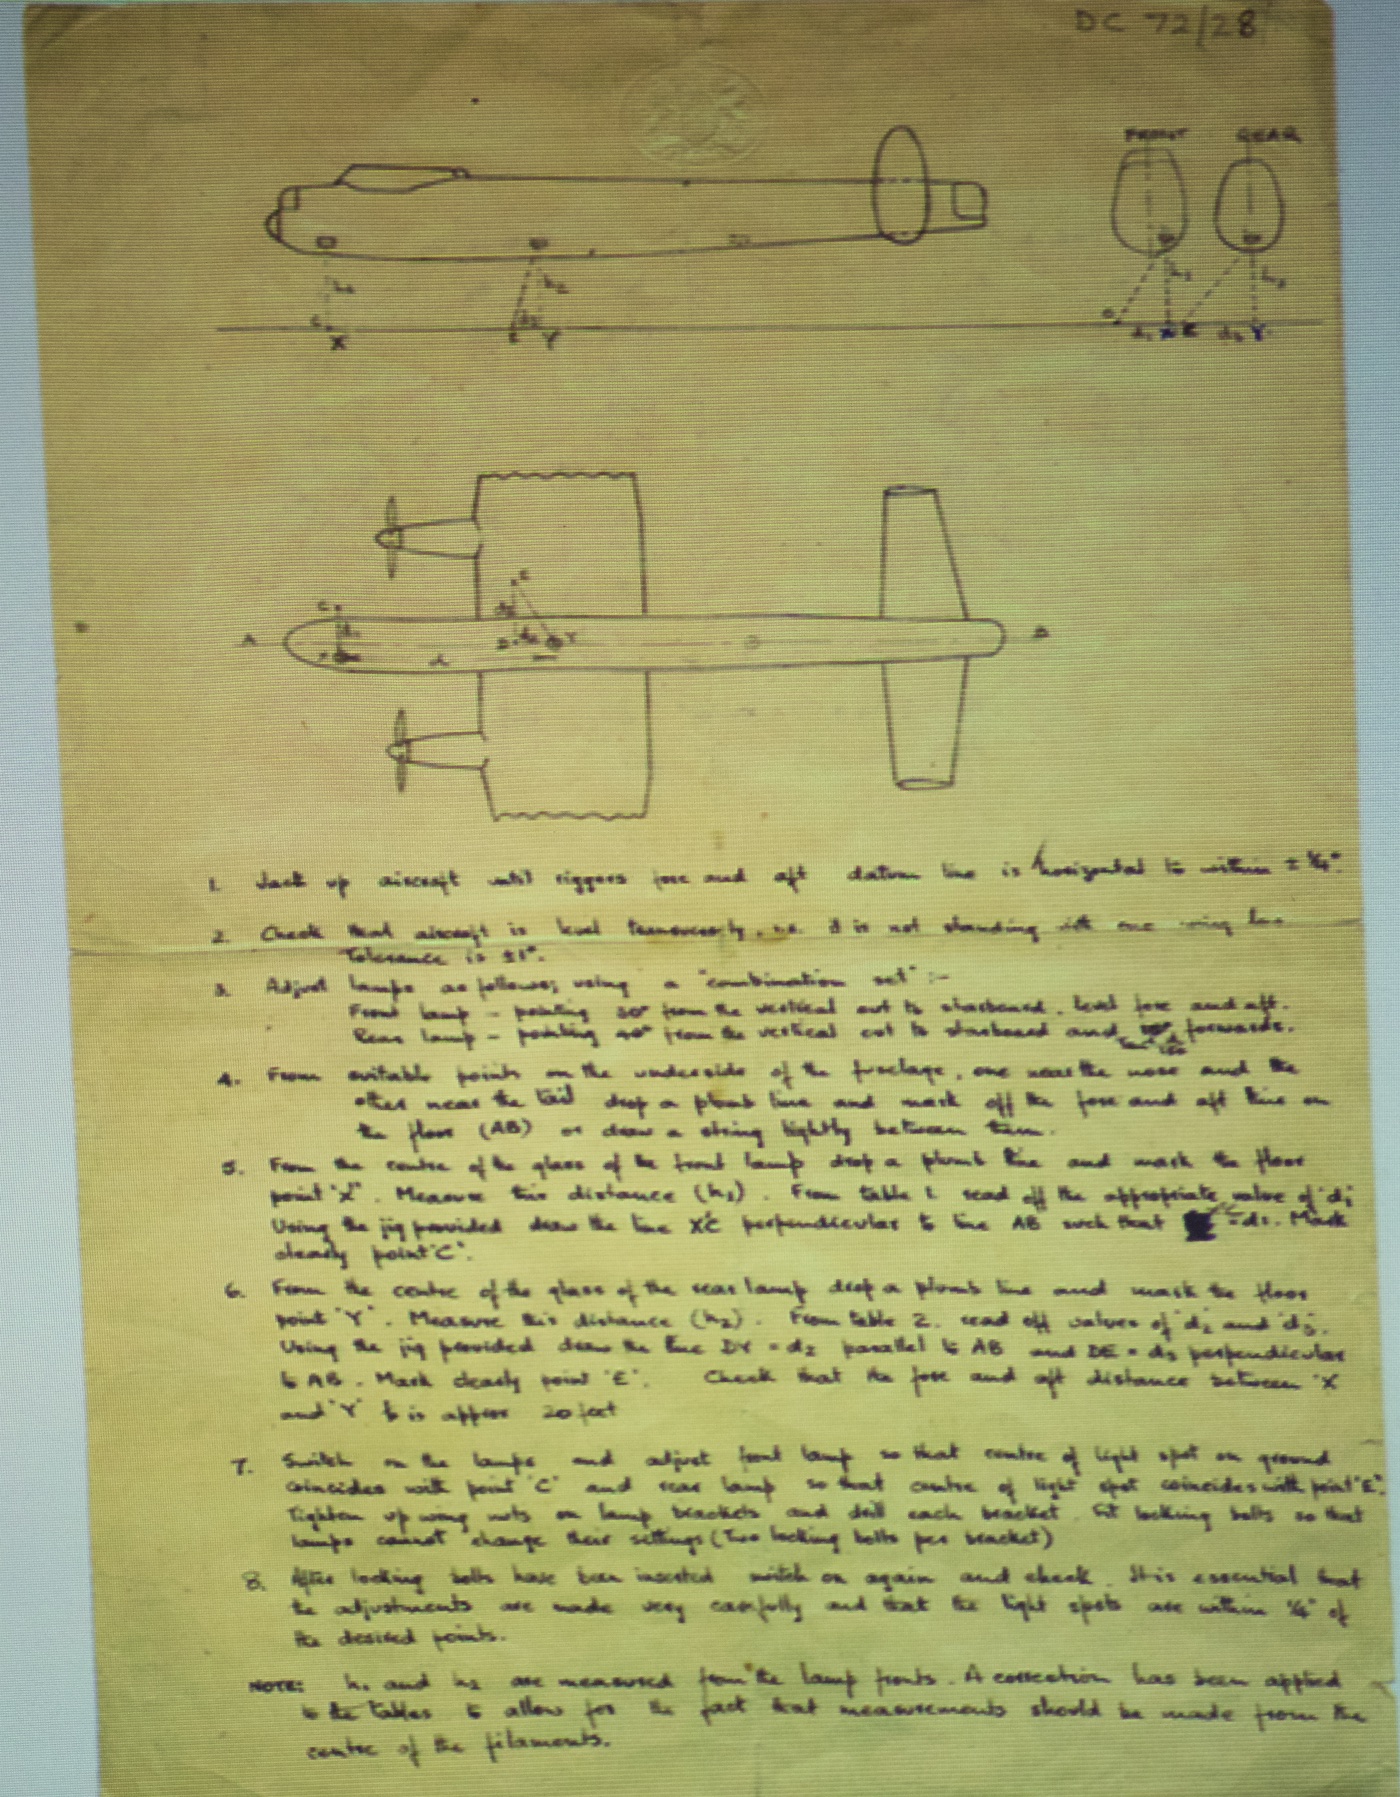 DC 72/28
FRONT REAR
h1 h2 h1 h2
C X E d2 Y C d1 X E d3 Y
C E
A d1 d3 D d2 Y B
X d
1. Jack up aircraft until riggers fore and aft datum line is horizontal to within ± ¼°.
2. Check that aircraft is level transversely, i.e. it is not standing with one wing low
Tolerance is ±1°.
3. Adjust lamps as follows, using a "combination set" :-
Front lamp - pointing 30° from the vertical out to starboard, level fore and aft.
Rear lamp - pointing 40° from the vertical out to starboard and forwards.
4. From suitable points on the underside of the fuselage, one near the nose and the
other near the tail drop a plumb line and mark off the fore and aft line on
the floor (AB) or draw a string tightly between them.
5. From the centre of the glass of the front lamp drop a plumb line and mark the floor
point "X". Measure this distance (h1). From table 1. read off the appropriate value of 'd1
Using the jig provided draw the line XC perpendicular to line AB such that = d1. Mark
clearly point "C".
6. From the centre of the glass of the rear lamp drop a plumb line and mark the floor
point 'Y'. Measure this distance (h2). From table 2. read off values of 'd2 and 'd3.
Using the jig provided draw the line DY = d2 parallel to AB and DE = d3 perpendicular
to AB. Mark clearly point 'E'. Check that the fore and aft distance between 'X
and 'Y' is approx 20 feet
7. Switch on the lamps and adjust front lamp so that centre of light spot on ground
coincides with point 'C' and rear lamp so that centre of light spot coincides with point "E".
Tighten up wing nuts on lamp brackets and drill each bracket. Fit locking bolts so that
lamps cannot change their settings (Two locking bolts per bracket)
8. After locking bolts have been inserted switch on again and check. It is essential that
the adjustments are made very carefully and that the light spots are within ¼" of
the desired points.
NOTE: h1 and h2 are measured from the lamp fronts. A correction has been applied
to the tables to allow for the fact that measurements should be made from the
centre of the filaments.